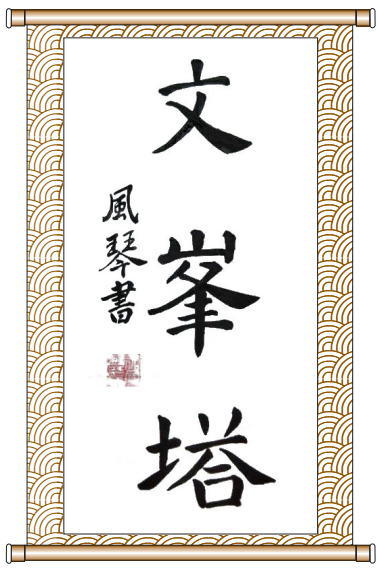 文峯塔
風琴書